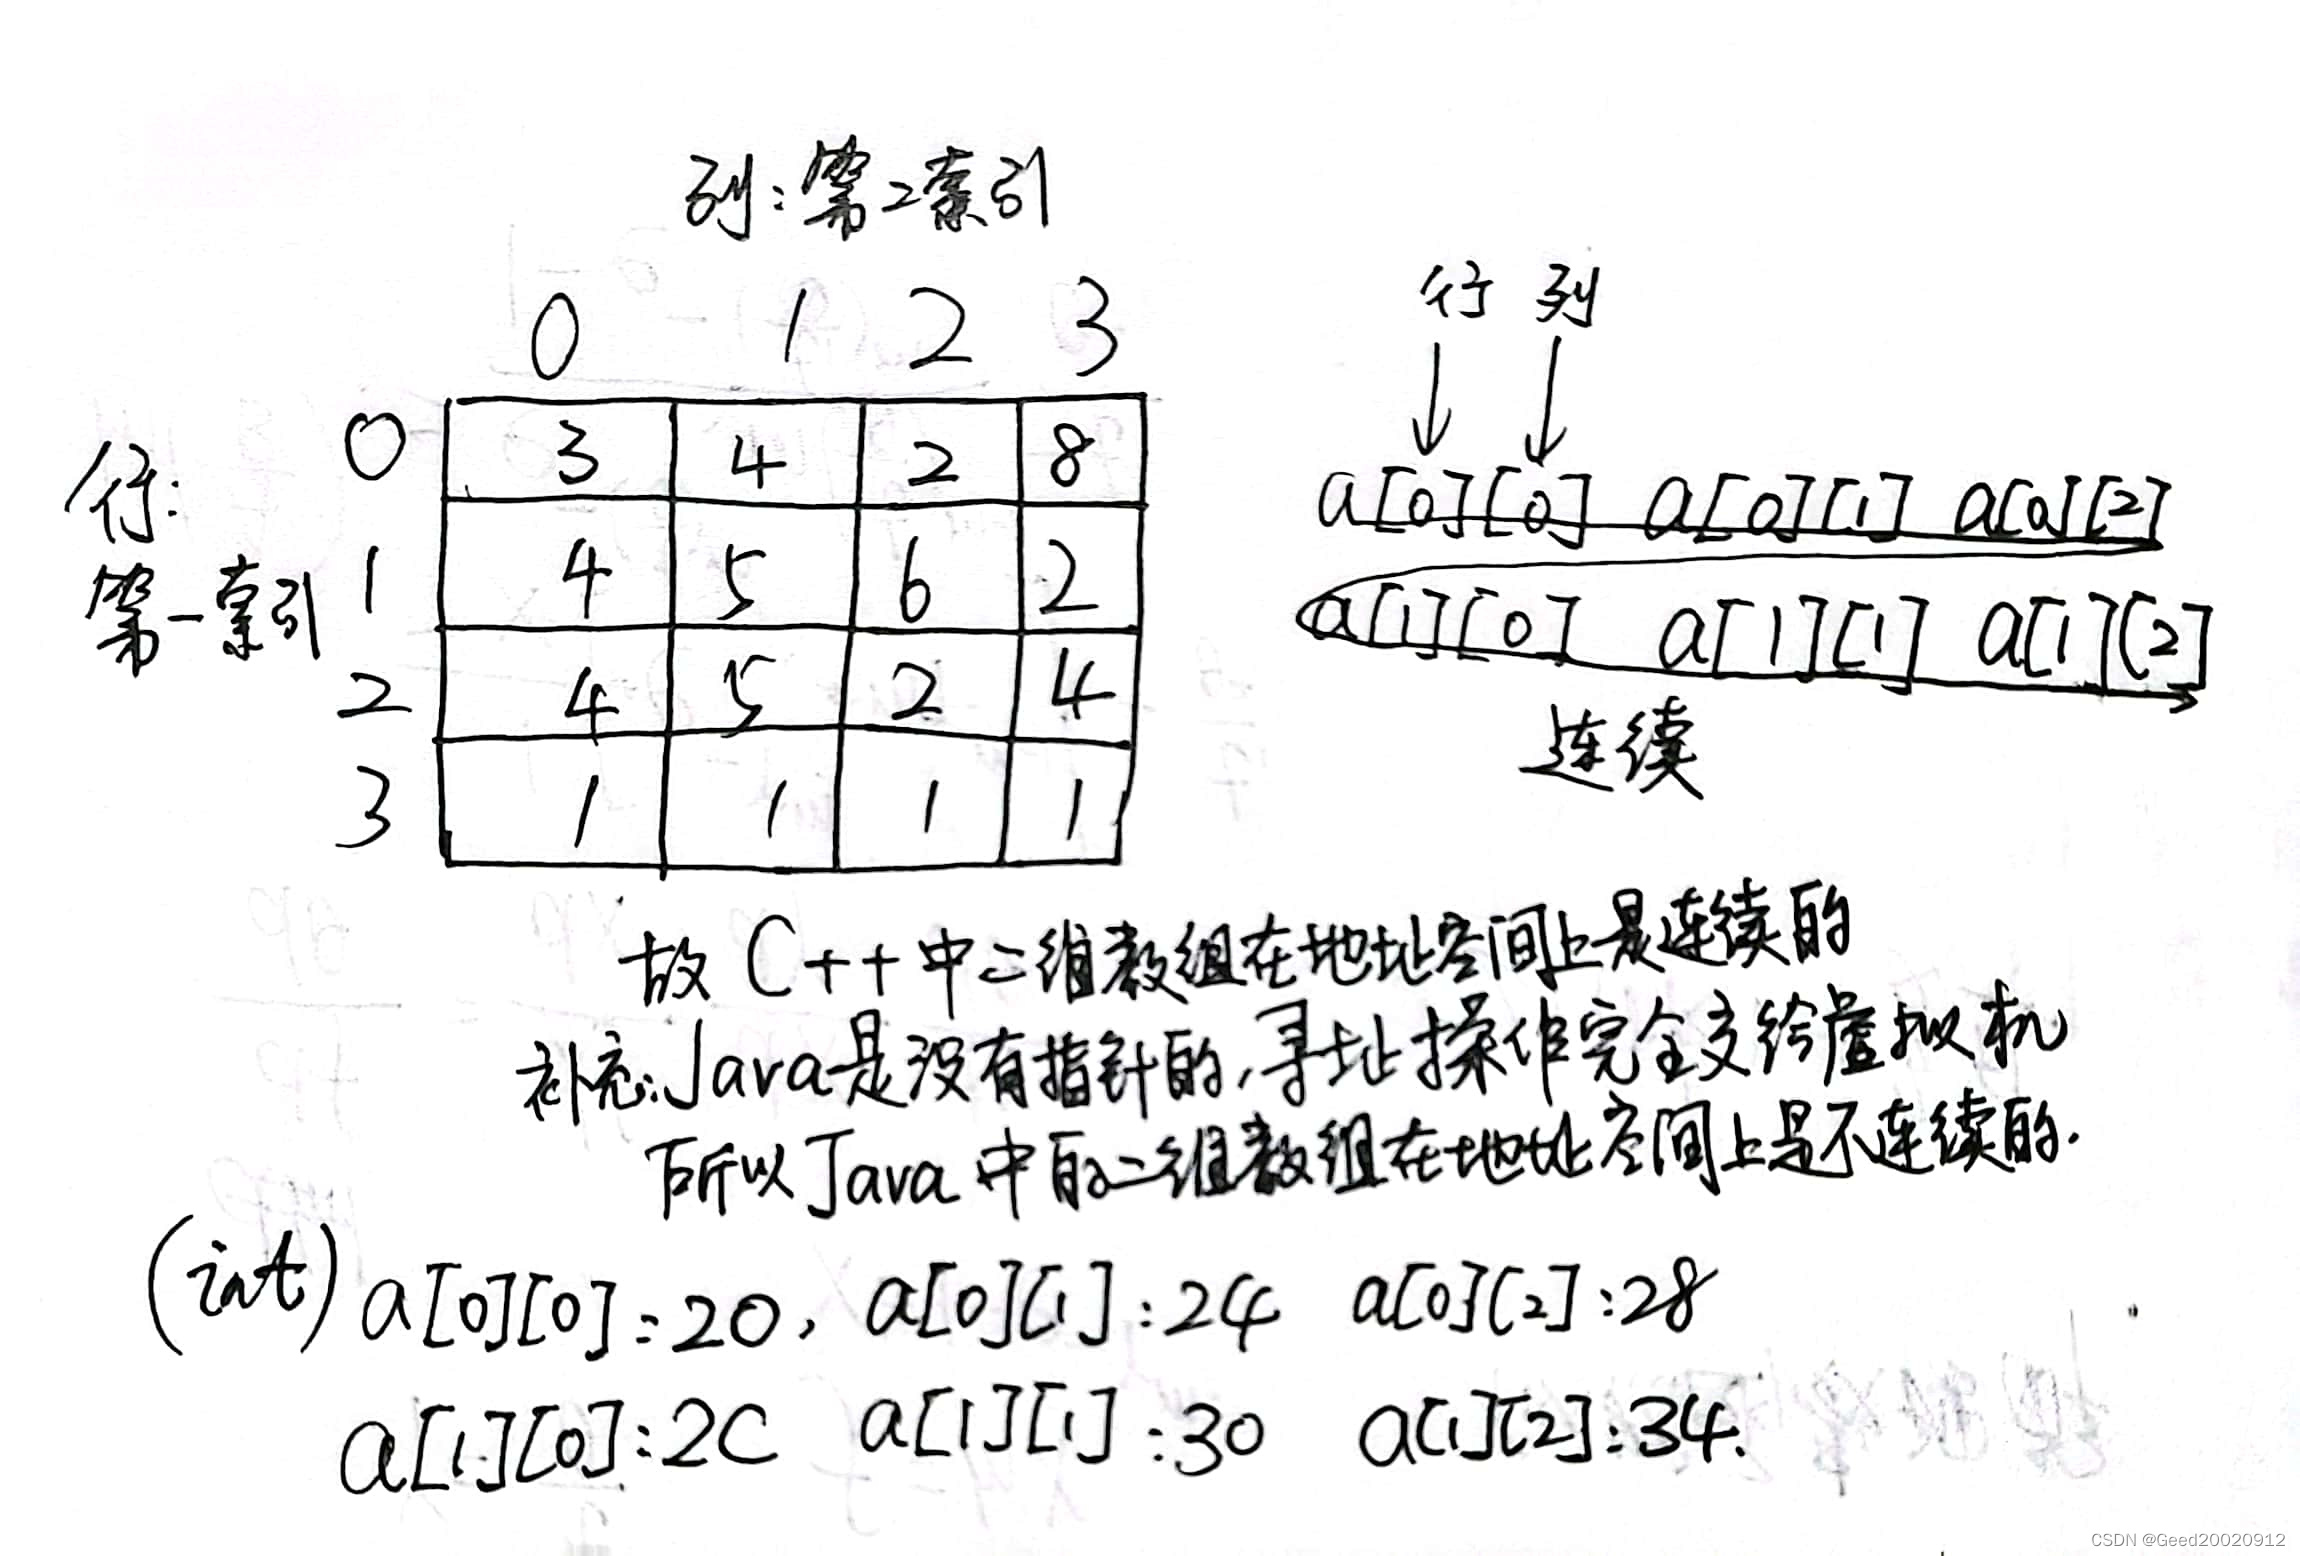 列：第2索引
0 1 2 3
行：
第一索引
0 3 4 2 8
1 4 5 6 2
2 4 5 2 4
3 1 1 1 1
行 列
a[0][0] a[0][1] a[0][2]
a[1][0] a[1][1] a[1][2]
连续
故 C++中二维数组在地址空间上是连续的
补充：Java是没有指针的，寻址操作完全交给虚拟机
所以Java中的二维数组在地址空间上是不连续的.
(int) a[0][0]:20, a[0][1]:24 a[0][2]:28
a[1][0]:2C a[1][1]:30 a[1][2]:34.
CSDN @Geed20020912